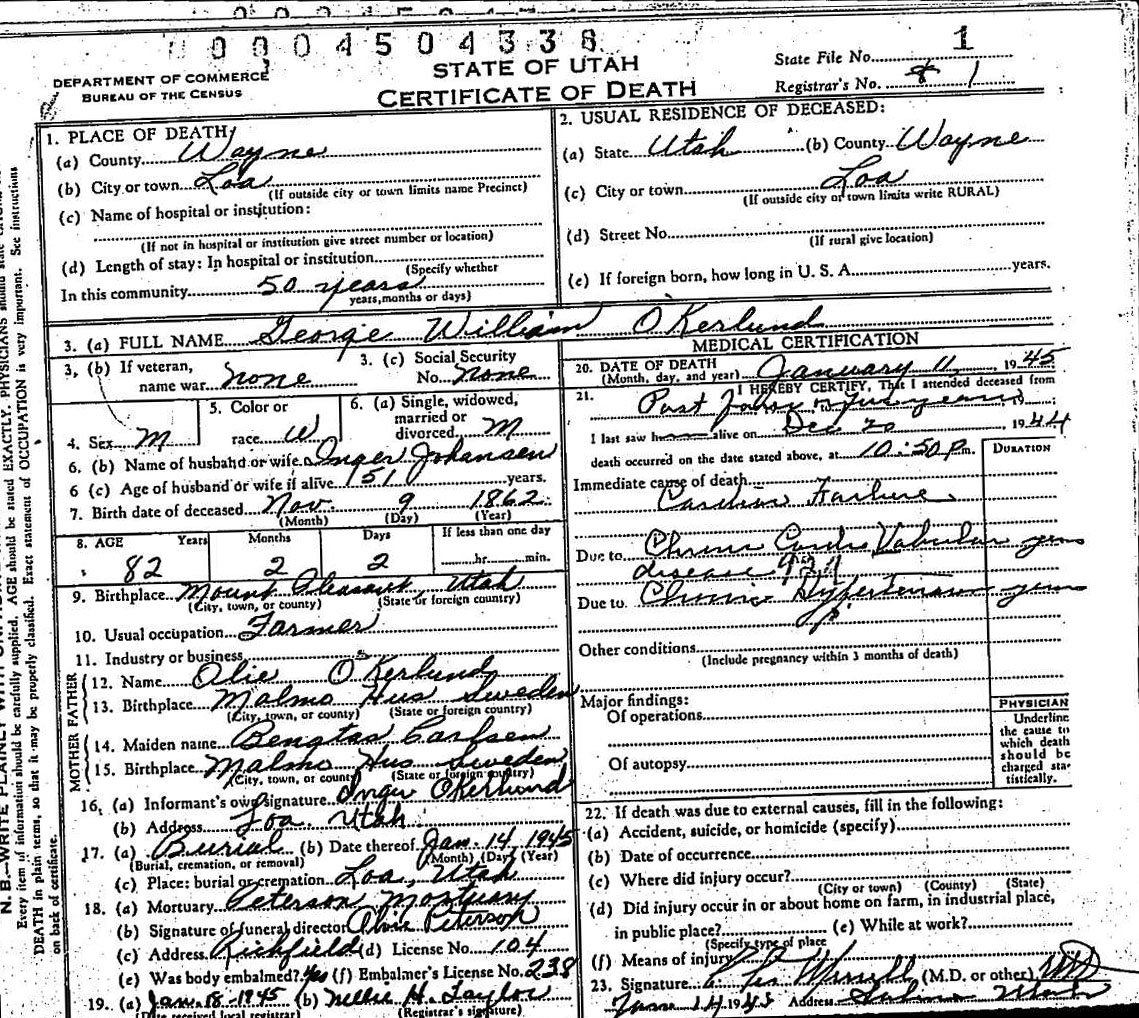 0 0 0 4 5 0 4 3 3 8
DEPARTMENT OF COMMERCE
BUREAU OF THE CENSUS
STATE OF UTAH
CERTIFICATE OF DEATH
State File No. 1
Registrar's No. 1
N. B.—WRITE PLAINLY WITH
Every item of information should be carefully supplied. AGE should be stated EXACTLY. PHYSICIANS should state
DEATH in plain terms, so that it may be properly classified. Exact statement of OCCUPATION is very important. See instructions
on back of certificate.
1. PLACE OF DEATH
(a) County Wayne
(b) City or town Loa
(If outside city or town limits name Precinct)
(c) Name of hospital or institution:
(If not in hospital or institution give street number or location)
(d) Length of stay: In hospital or institution
(Specify whether
In this community 50 years
years, months or days)
2. USUAL RESIDENCE OF DECEASED:
(a) State Utah (b) County Wayne
(c) City or town Loa
(If outside city or town limits write RURAL)
(d) Street No.
(If rural give location)
(e) If foreign born, how long in U. S. A. years.
3. (a) FULL NAME George William O'Kerlund
3. (b) If veteran,
name war none
3. (c) Social Security
No. none
4. Sex M
5. Color or
race W
6. (a) Single, widowed,
married or
divorced M
6. (b) Name of husband or wife Inger Johansen
6 (c) Age of husband or wife if alive 51 years.
7. Birth date of deceased Nov. 9 1862
(Month) (Day) (Year)
8. AGE Years Months Days If less than one day
82 2 2 hr. min.
9. Birthplace Mount Pleasant, Utah
(City, town, or county) (State or foreign country)
10. Usual occupation Farmer
11. Industry or business
MOTHER FATHER
12. Name Olie O'Kerlund
13. Birthplace Malmo Hus Sweden
(City, town, or county) (State or foreign country)
14. Maiden name Bengtas Carlsen
15. Birthplace Malmo Hus Sweden
(City, town, or county) (State or foreign country)
16. (a) Informant's own signature Inger Okerlund
(b) Address Loa, Utah
17. (a) Burial (b) Date thereof Jan. 14, 1945
(Burial, cremation, or removal) (Month) (Day) (Year)
(c) Place: burial or cremation Loa, Utah
18. (a) Mortuary Peterson Mortuary
(b) Signature of funeral director Peterson
(c) Address Richfield (d) License No. 104
(e) Was body embalmed? Yes (f) Embalmer's License No. 238
19. (a) Jan. 18-1945 (b) Nellie H. Taylor
(Date received local registrar) (Registrar's signature)
MEDICAL CERTIFICATION
20. DATE OF DEATH
(Month, day, and year) January 11, 1945
21. I HEREBY CERTIFY, That I attended deceased from
Past four or five years
I last saw h alive on Dec 20 1944
death occurred on the date stated above, at 10:50 P.m.
DURATION
Immediate cause of death
Cardiac Failure
Due to Chronic Cardio Valvular years
disease
Due to Chronic Hypertension years
Other conditions
(Include pregnancy within 3 months of death)
Major findings:
Of operations
Of autopsy
PHYSICIAN
Underline
the cause to
which death
should be
charged sta-
tistically.
22. If death was due to external causes, fill in the following:
(a) Accident, suicide, or homicide (specify)
(b) Date of occurrence
(c) Where did injury occur?
(City or town) (County) (State)
(d) Did injury occur in or about home on farm, in industrial place,
in public place? (e) While at work?
(Specify type of place
(f) Means of injury
23. Signature (M.D. or other) MD
1945 Address Utah